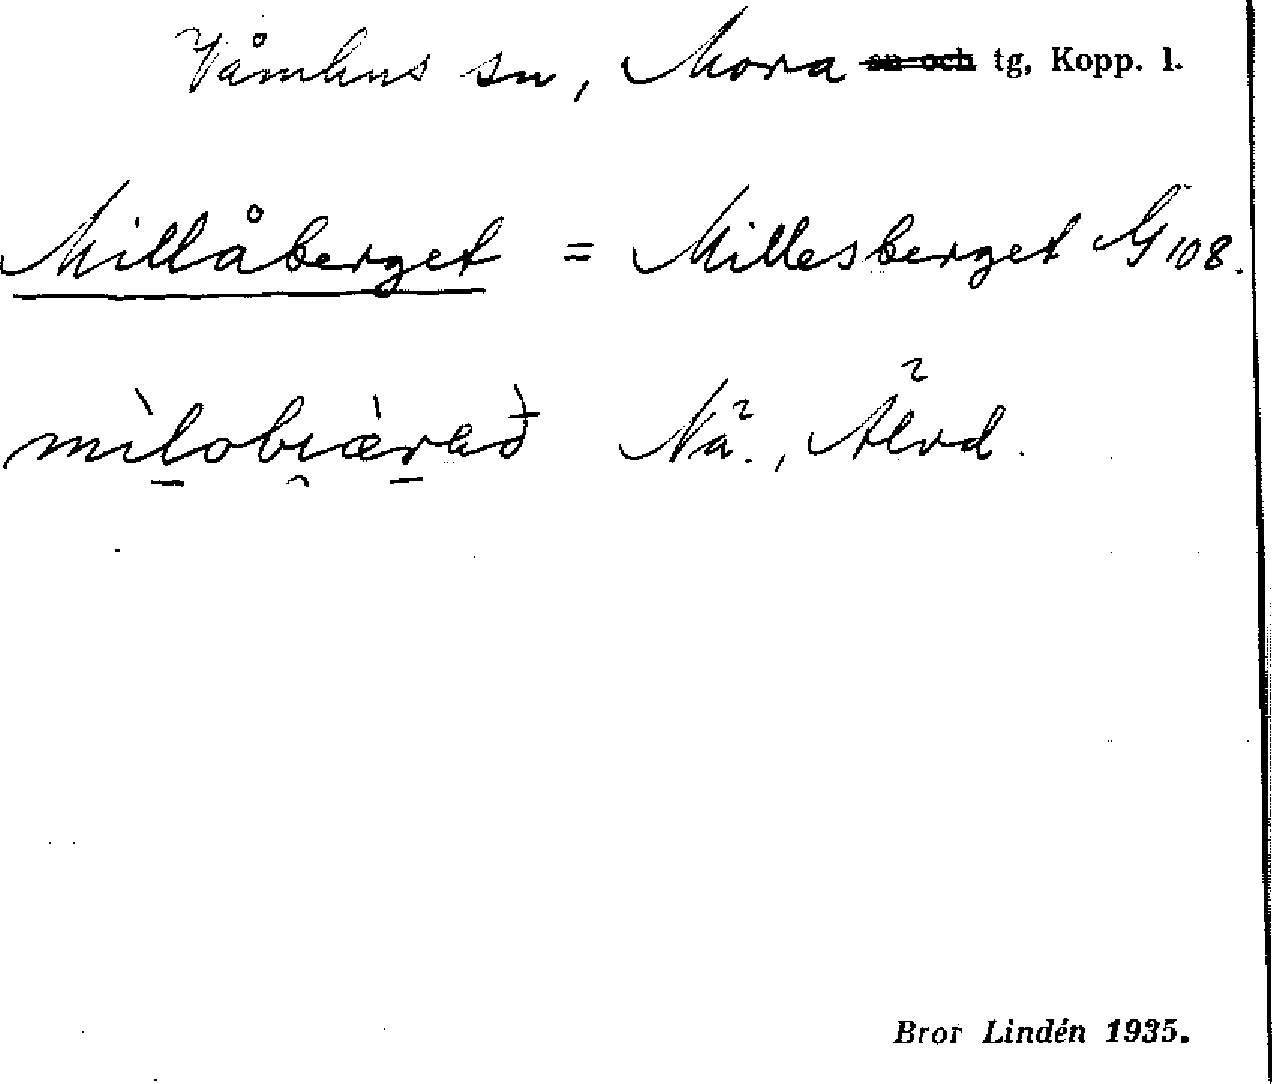 Våmhus sn, Mora sn och tg, Kopp. l.
Millåberget = Millesberget G 108.
Älvd.
Bror Lindén 1935.